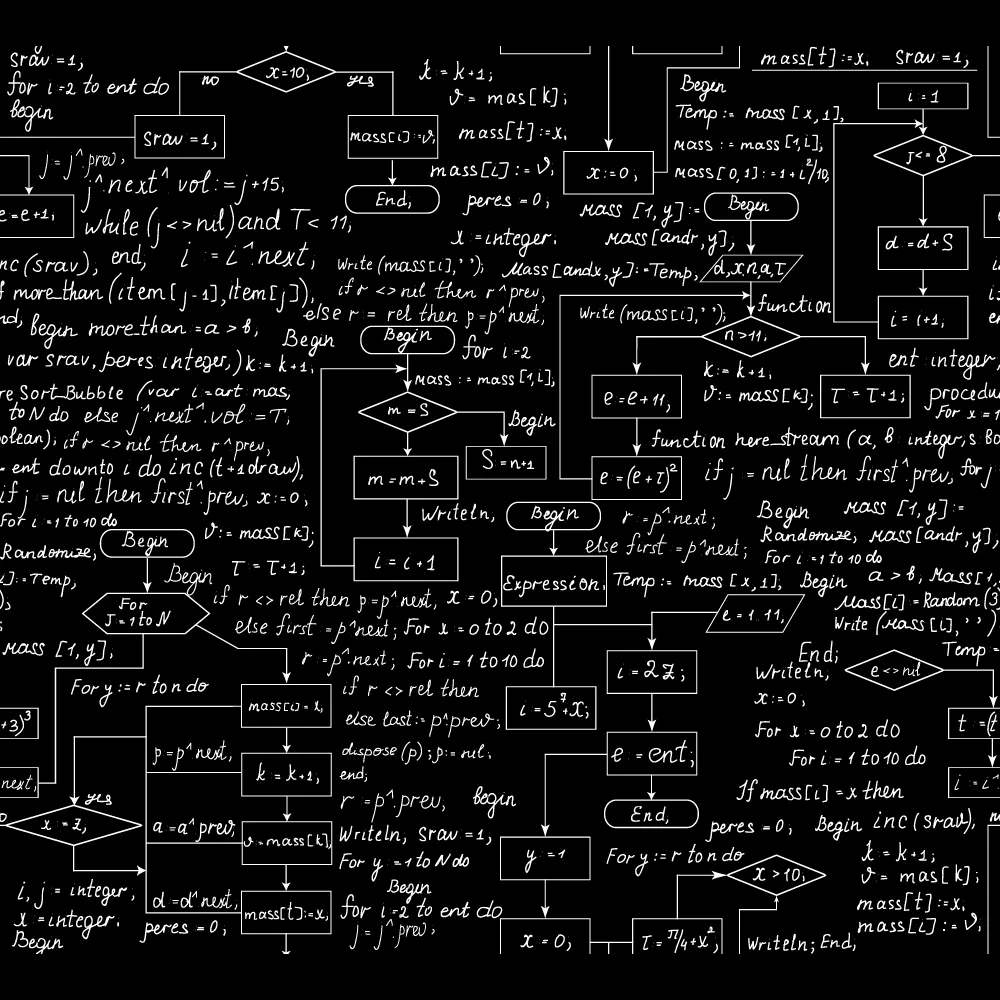 srav =1;
for i=2 to ent do
begin
no
x=10,
yes
srav =1;
mass[i]:=v;
End,
k = k+1;
v = mas[k];
mass[t]:=x,
mass[i]:= v,
peres = 0,
x =integer.
x:=0;
Begin
Temp:= mass [x,1],
mass := mass[1,i],
mass[0,1]:=1+i²/10,
mass[t]:=x, srav =1,
i = 1
J<= 8
d =d+S
i = i+1,
mass [1,y]:=
Begin
mass[andr,y],
Mass[andx,y]:=Temp,
d,x,n,a,τ
function
Write(mass[i],' ');
n>11,
e=e+11,
k:= k+1,
v:= mass[k];
τ = τ+1;
e=(e+τ)²
j = j^.prev,
j^.next^.vol:=j+15,
e=e+1,
while (j<>nil)and T< 11,
nc(srav), end, i := i^.next,
f more_than(item[j-1],item[j]),
nd, begin more_than =a > b,
var srav, peres integer,) k:= k+1,
re Sort_Bubble (var i=art mas,
to N do else j^.next^.vol =T,
olean); if r <>nil then r^prev,
- ent downto i do inc(t+1draw),
if j = nil then first^.prev, x:=0,
For i=1 to 10 do
v:= mass[k];
Write(mass[i],' ');
if r <>nil then r^prev,
else r = rel then p=p^next,
Begin
Begin
for i=2
mass := mass[1,i],
m =S
Begin
S =n+1
m=m+S
i = i+1
ent integer,
procedu
For x =1
function here_stream (a, b integer,s bo
if j = nil then first^.prev, for j
Writeln,
Begin
r =p^.next;
else first =p^next;
Begin Mass [1,y]:=
Randomize, Mass[andr,y],
For i=1 to 10 do
Randomize,
Begin
x]:=Temp,
Begin
τ = τ+1;
For
J=1 to N
if r <>rel then p=p^next, x =0,
else first =p^next; For x =0 to 2 do
r =p^.next; For i=1 to 10 do
mass [1,y];
For y:=r to n do
if r <>rel then
else last:=p^prev;
dispose(p);p:= nil;
end;
r =p^.prev, begin
Writeln, srav =1,
For y =1 to N do
Begin
for i=2 to ent do
j= j^.prev,
mass[i]= x,
k = k+1,
v:=mass[k]
mass[t]:=x,
+3)³
next,
p=p^next,
yes
x = z;
a=a^prev;
d =d^next,
peres =0,
i, j = integer,
x =integer.
Begin
Expression,
Temp:= mass [x,1], Begin a > b, Mass[1,
e=1..11,
Mass[i]=Random(3
Write (Mass[i],' ')
i = 2z;
i =5⁷+x;
e =ent;
End,
End;
Writeln;
x:=0;
e<>nil
Temp =
For x =0 to 2 do
For i=1 to 10 do
If mass[i]=x then
t =(t
i = i^
peres =0, Begin inc(srav),
y =1
For y:=r to n do
x >10,
k = k+1;
v = mas[k];
mass[t]:=x,
mass[i]:= v,
x = 0,
τ=π/4+x²,
Writeln; End,